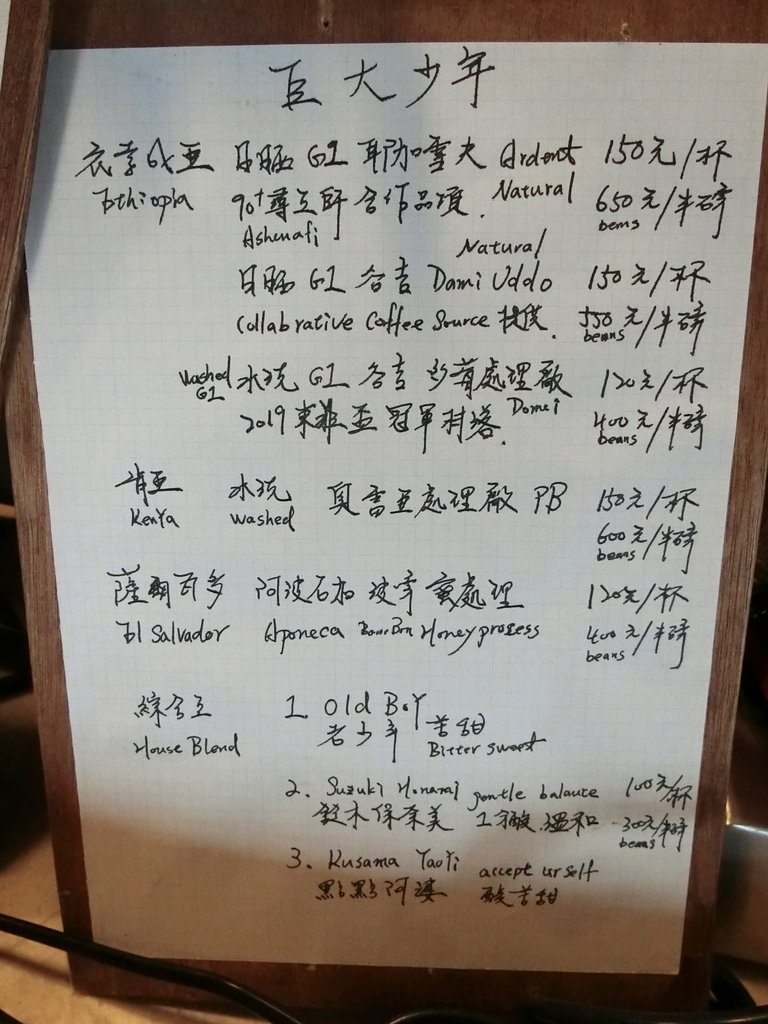 巨大少年
衣索比亞 日曬 G1 耶加雪夫 Ardent 150元/杯
Ethiopia 90+尊立師合作品項. Natural 650元/半磅
Ashenafi beans
Natural
日曬 G1 谷吉 Dami Uddo 150元/杯
Collabrative Coffee Source 提供. 550元/半磅
beans
washed G1 水洗 G1 谷吉 處理廠 120元/杯
2019 東非盃冠軍村落. Domei 400元/半磅
beans
肯亞 水洗 貝雷亞處理廠 PB 150元/杯
Kenya washed 600元/半磅
beans
薩爾瓦多 阿波石加 波旁 蜜處理 120元/杯
El Salvador Aponeca BourBon Honey progess 400元/半磅
beans
綜合豆 1 Old Boy
House Blend 老少年 苦甜
Bitter sweet
2. Suzuki Honami gentle balance 100元/杯
鈴木保奈美 微酸.溫和 300元/半磅
beans
3. Kusama YaoYi accept urself
點點阿婆 酸苦甜